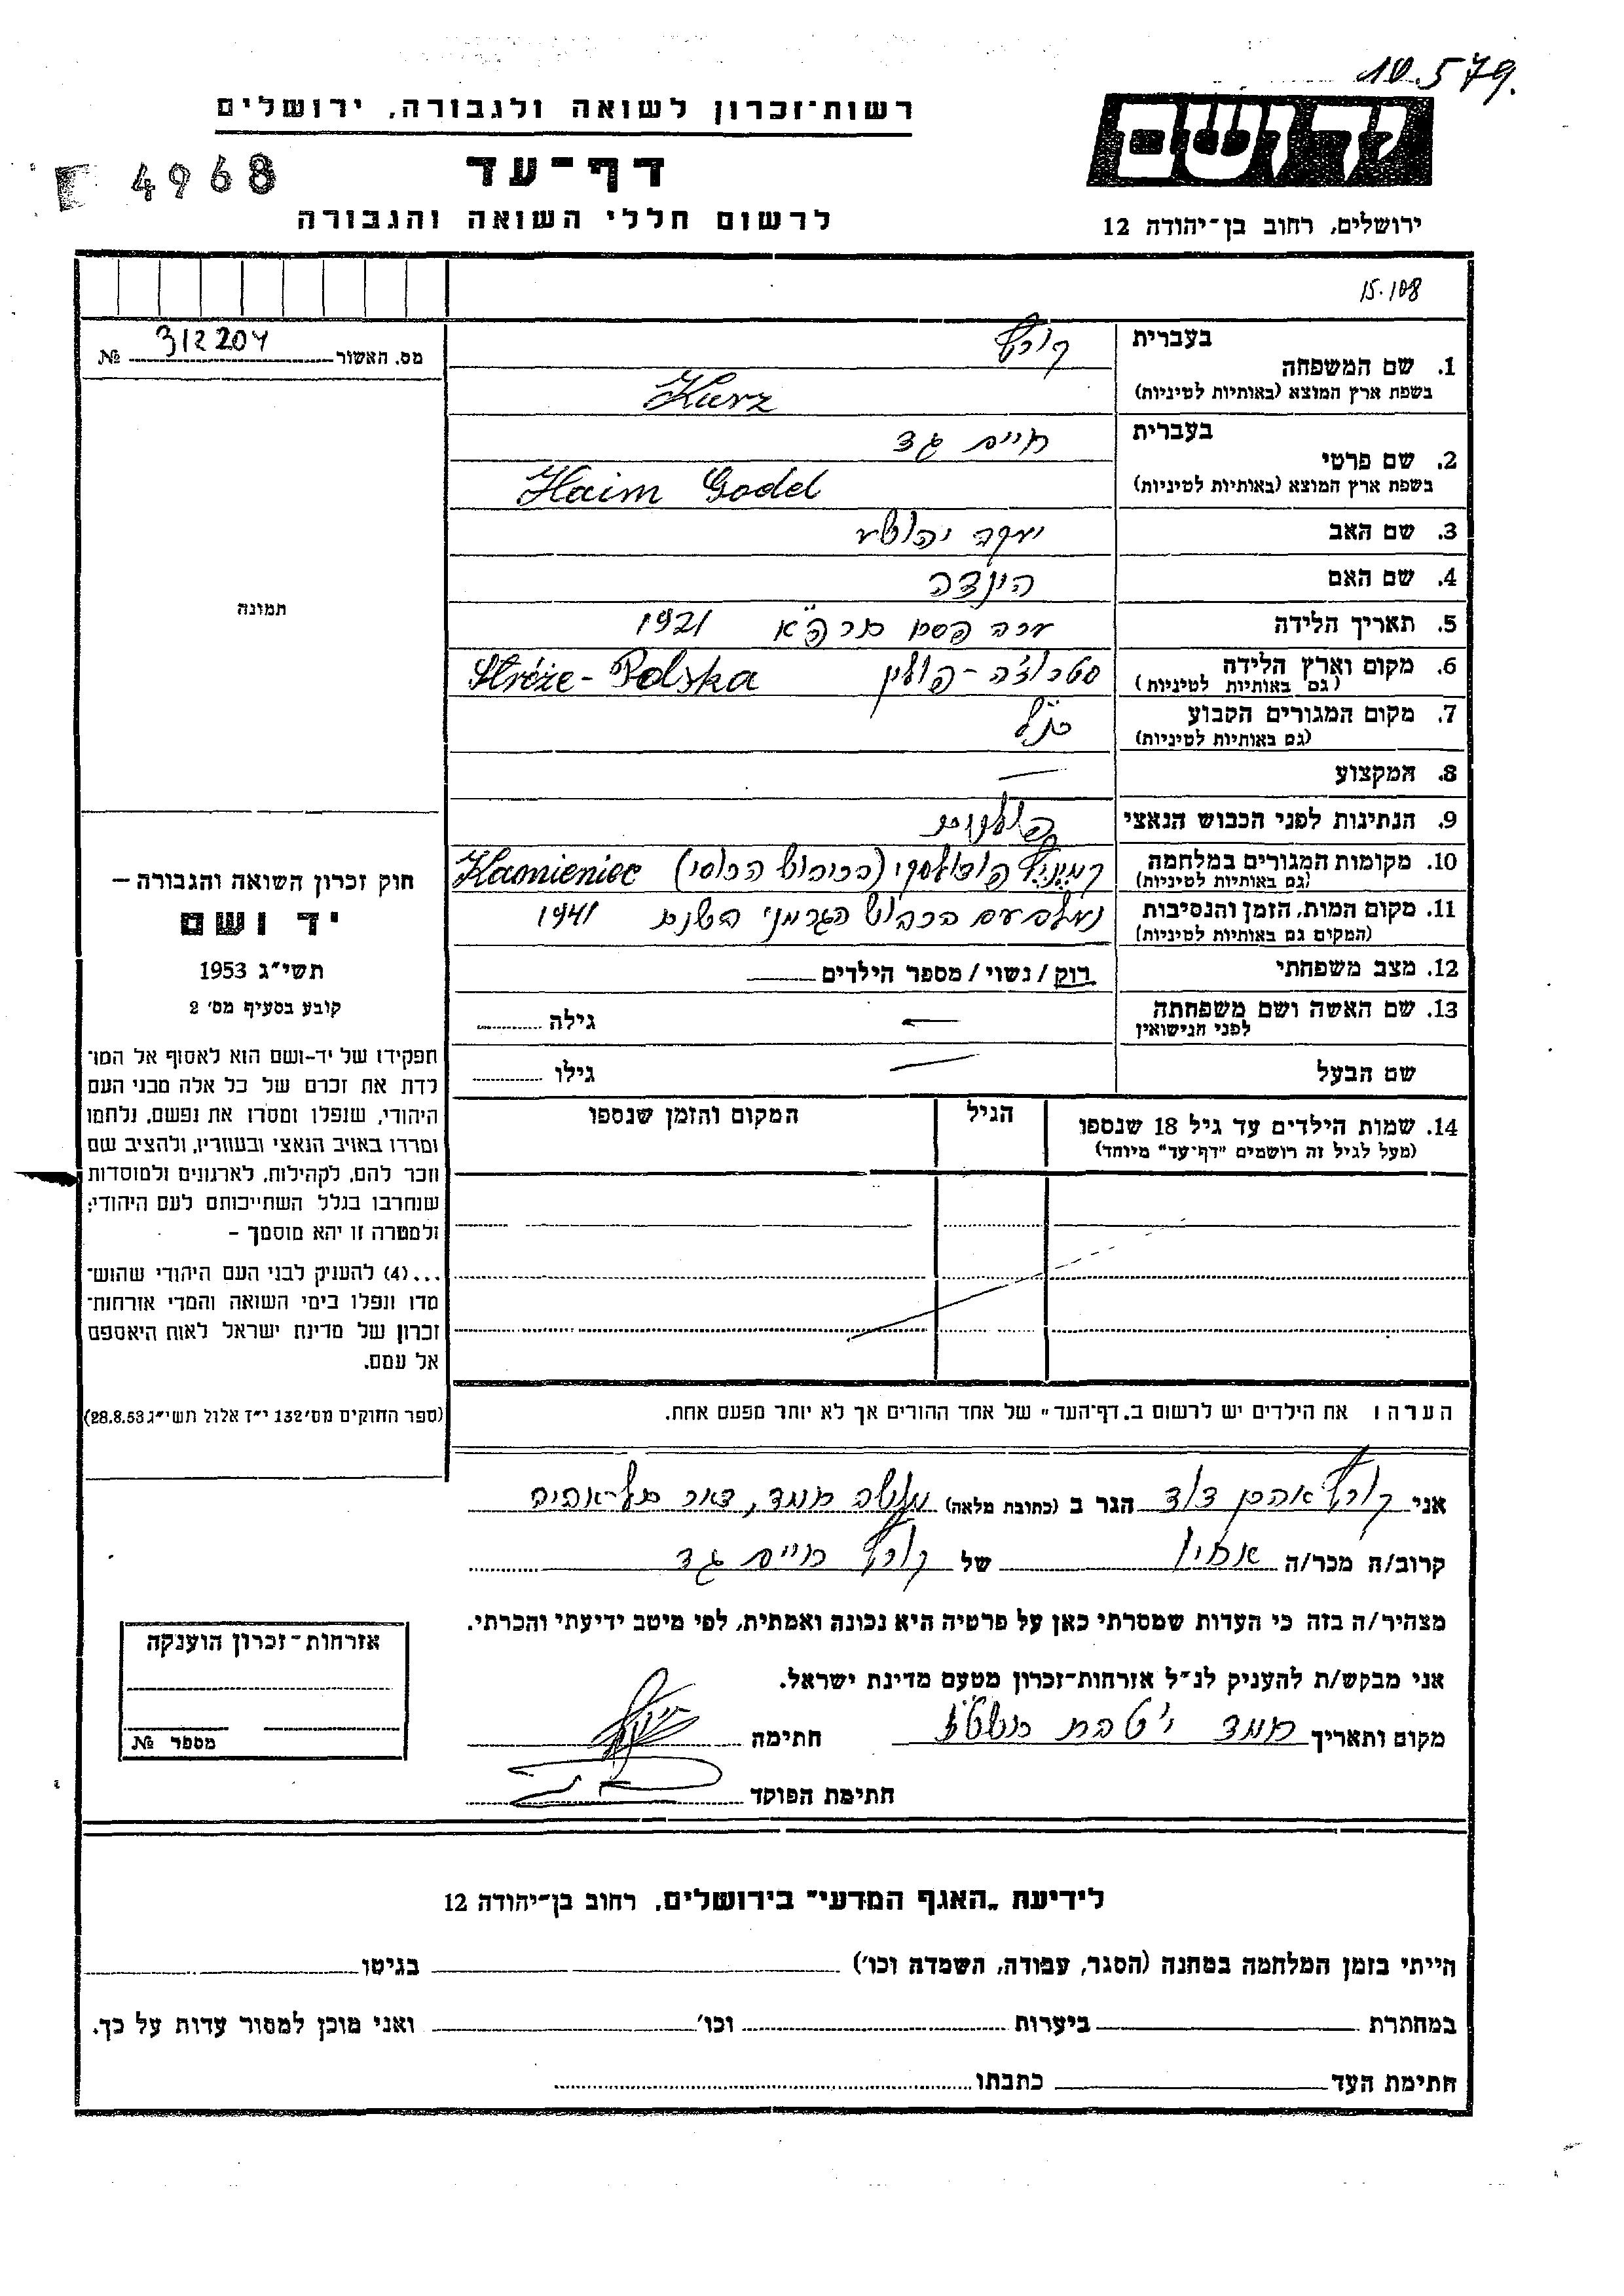 10.579.
רשות-זכרון לשואה ולגבורה, ירושלים
דף-עד
4968
לרשום חללי השואה והגבורה
ירושלים, רחוב בן-יהודה 12
15.108
מס. האשור № 312204
בעברית קורץ
1. שם המשפחה
בשפת ארץ המוצא (באותיות לטיניות) Kurz
בעברית חיים גד
2. שם פרטי
בשפת ארץ המוצא (באותיות לטיניות) Haim Godel
3. שם האב יעקב יהושע
4. שם האם הינדה
5. תאריך הלידה ערב פסח תרפ"א 1921
6. מקום וארץ הלידה סטרוז'ה - פולין Stróże - Polska
(גם באותיות לטיניות)
7. מקום המגורים הקבוע כנ"ל
(גם באותיות לטיניות)
8. המקצוע —
9. הנתינות לפני הכבוש הנאצי פולנית
10. מקומות המגורים במלחמה קמיניץ פודולסקי (בכיבוש הרוסי) Kamieniec
(גם באותיות לטיניות)
11. מקום המות, הזמן והנסיבות נעלם עם הכבוש הגרמני בשנת 1941
(המקום גם באותיות לטיניות)
12. מצב משפחתי רוק / נשוי / מספר הילדים
13. שם האשה ושם משפחתה — גילה
לפני הנישואין
שם הבעל — גילו
14. שמות הילדים עד גיל 18 שנספו הגיל המקום והזמן שנספו
(מעל לגיל זה רושמים "דף-עד" מיוחד)
תמונה
חוק זכרון השואה והגבורה —
יד ושם
תשי"ג 1953
קובע בסעיף מס' 2
תפקידו של יד-ושם הוא לאסוף אל המו־
לדת את זכרם של כל אלה מבני העם
היהודי, שנפלו ומסרו את נפשם, נלחמו
ומרדו באויב הנאצי ובעוזריו, ולהציב שם
וזכר להם, לקהילות, לארגונים ולמוסדות
שנחרבו בגלל השתייכותם לעם היהודי;
ולמטרה זו יהא מוסמך –
...(4) להעניק לבני העם היהודי שהוש־
מדו ונפלו בימי השואה והמרי אזרחות־
זכרון של מדינת ישראל לאות היאספם
אל עמם.
(ספר החוקים מס' 132 י"ז אלול תשי"ג 28.8.53)
הערה: את הילדים יש לרשום ב„דף־העד" של אחד ההורים אך לא יותר מפעם אחת.
אני קורץ אהרן דוד הגר ב (כתובת מלאה) חמד, דאר תל-אביב
קרוב/ה מכר/ה אחיו של קורץ חיים גד
מצהיר/ה בזה כי העדות שמסרתי כאן על פרטיה היא נכונה ואמתית, לפי מיטב ידיעתי והכרתי.
אני מבקש/ת להעניק לנ"ל אזרחות-זכרון מטעם מדינת ישראל.
מקום ותאריך חמד י' טבת חתימה
חתימת הפוקד
אזרחות-זכרון הוענקה
מספר №
לידיעת „האגף המדעי" בירושלים, רחוב בן-יהודה 12
הייתי בזמן המלחמה במחנה (הסגר, עבודה, השמדה וכו') בגיטו
במחתרת ביערות וכו' ואני מוכן למסור עדות על כך.
חתימת העד כתבתו